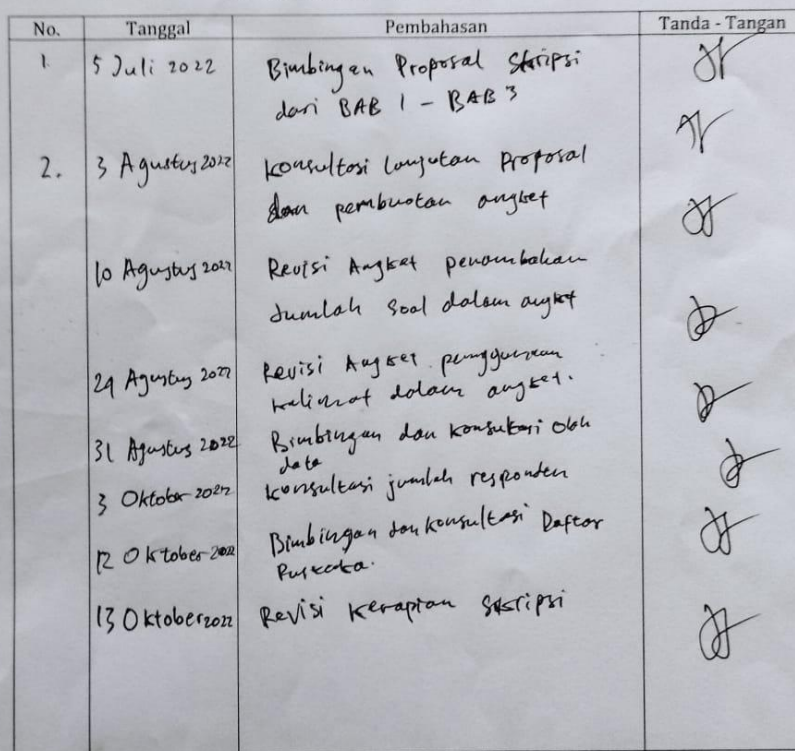 No. Tanggal Pembahasan Tanda - Tangan
1. 5 Juli 2022 Bimbingan Proposal Skripsi
dari BAB 1 - BAB 3
2. 3 Agustus 2022 Konsultasi Lanjutan Proposal
dan pembuatan angket
10 Agustus 2022 Revisi Angket penambahan
Jumlah Soal dalam angket
29 Agustus 2022 Revisi Angket penggunaan
kalimat dalam angket.
31 Agustus 2022 Bimbingan dan Konsultasi Olah
data
3 Oktober 2022 Konsultasi jumlah responden
12 Oktober 2022 Bimbingan dan Konsultasi Daftar
Pustaka.
13 Oktober 2022 Revisi Kerapian Skripsi